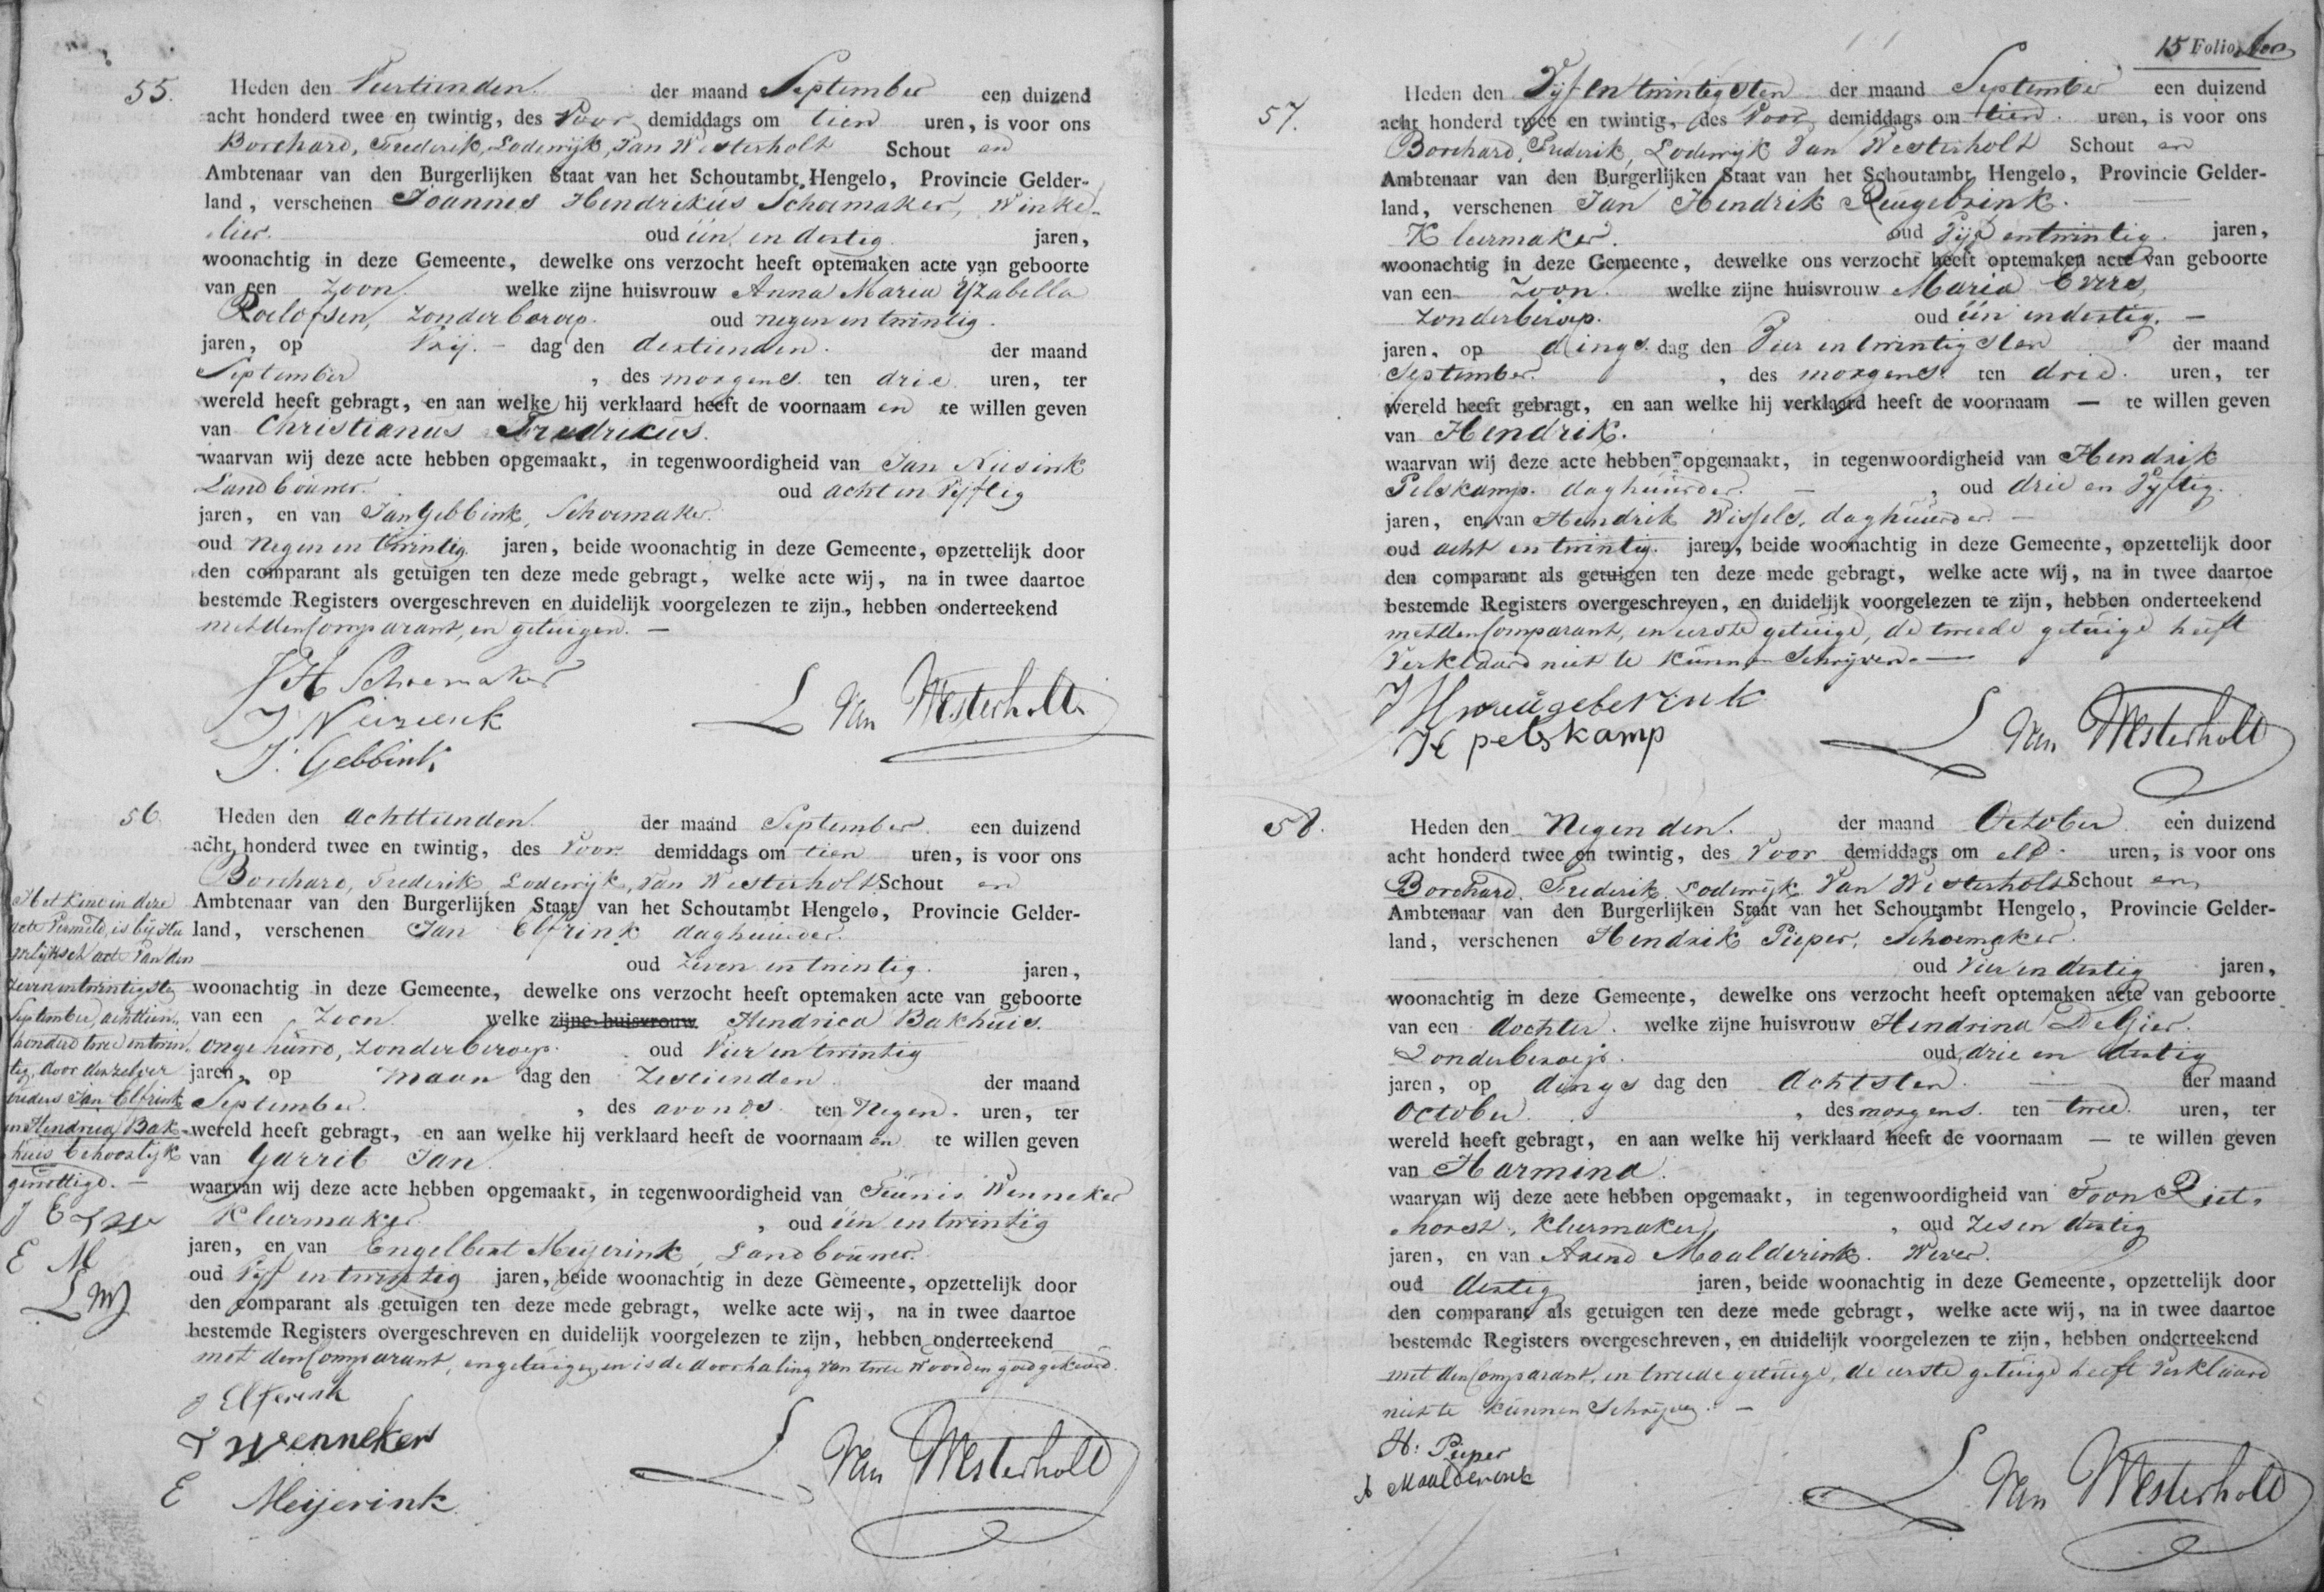 55.
Heden den Viertienden der maand September een duizend
acht honderd twee en twintig, des Voor demiddags om tien uren, is voor ons
Borchard, Frederik, Lodewijk, Van Westerholt Schout en
Ambtenaar van den Burgerlijken Staat van het Schoutambt Hengelo, Provincie Gelder-
land, verschenen Joannes Hendrikus Schoemaker, Winke-
lier. oud één en dertig jaren,
woonachtig in deze Gemeente, dewelke ons verzocht heeft optemaken acte van geboorte
van een Zoon welke zijne huisvrouw Anna Maria Yzabella
Roelofsen, Zonder beroep. oud negen en twintig.
jaren, op Vrij - dag den dertienden. der maand
September , des morgens ten drie uren, ter
wereld heeft gebragt, en aan welke hij verklaard heeft de voornaam en te willen geven
van Christianus Fredricus.
waarvan wij deze acte hebben opgemaakt, in tegenwoordigheid van Jan Niesink
Landbouwer. oud acht en Vijftig
jaren, en van Jan Gebbink, Schoemaker.
oud Negen en twintig jaren, beide woonachtig in deze Gemeente, opzettelijk door
den comparant als getuigen ten deze mede gebragt, welke acte wij, na in twee daartoe
bestemde Registers overgeschreven en duidelijk voorgelezen te zijn, hebben onderteekend
met den Comparant, en getuigen. —
J H Schoemaker
J Neizienk
J. Gebbink.
L Van Westerholt
56.
Heden den Achttienden der maand September een duizend
acht honderd twee en twintig, des Voor demiddags om tien uren, is voor ons
Borchard, Frederik, Lodewijk, Van Westerholt Schout en
Ambtenaar van den Burgerlijken Staat van het Schoutambt Hengelo, Provincie Gelder-
land, verschenen Jan Elfrink daghuurder.
oud Zeven en twintig. jaren,
woonachtig in deze Gemeente, dewelke ons verzocht heeft optemaken acte van geboorte
van een Zoon welke zijne huisvrouw Hendrica Bakhuis.
Ongehuwd, Zonder beroep. oud Vier en twintig
jaren, op Maan dag den Zestienden der maand
September. , des avonds ten Negen. uren, ter
wereld heeft gebragt, en aan welke hij verklaard heeft de voornaam en te willen geven
van Garrit Jan
waarvan wij deze acte hebben opgemaakt, in tegenwoordigheid van Teunis Wenneker
Kleermaker. , oud één en twintig
jaren, en van Engelbert Meijerink, Landbouwer.
oud Vijf en twintig jaren, beide woonachtig in deze Gemeente, opzettelijk door
den comparant als getuigen ten deze mede gebragt, welke acte wij, na in twee daartoe
bestemde Registers overgeschreven en duidelijk voorgelezen te zijn, hebben onderteekend
met den Comparant, en getuigen, en is de doorhaling van twee woorden goedgekeurd.
J Elferink
T Wennekes
E Meijerink
L Van Westerholt
Het kind in deze
acte Vermeld, is bij Hu
welijksch acte Van den
Zeven en twintigste
September, achttien
honderd twee en twin
tig, door deszelver
ouders Jan Elfrink
en Hendrica Bak-
huis behoorlijk
gewettigd. —
J E T W
E M
L W
15 Folio
57.
Heden den Vijf en twintigsten der maand September een duizend
acht honderd twee en twintig, des Voor demiddags om tien uren, is voor ons
Borchard, Frederik, Lodewijk Van Westerholt Schout en
Ambtenaar van den Burgerlijken Staat van het Schoutambt Hengelo, Provincie Gelder-
land, verschenen Jan Hendrik Reugebrink.
Kleermaker. oud Vijf en twintig. jaren,
woonachtig in deze Gemeente, dewelke ons verzocht heeft optemaken acte van geboorte
van een Zoon. welke zijne huisvrouw Maria Evers,
Zonder beroep. oud één en dertig. —
jaren, op dings dag den Vier en twintigsten der maand
September. , des morgens ten drie. uren, ter
wereld heeft gebragt, en aan welke hij verklaard heeft de voornaam — te willen geven
van Hendrik.
waarvan wij deze acte hebben opgemaakt, in tegenwoordigheid van Hendrik
Pelskamp. daghuurder. — , oud drie en Vijftig.
jaren, en van Hendrik Wissels, daghuurder. —
oud acht en twintig. jaren, beide woonachtig in deze Gemeente, opzettelijk door
den comparant als getuigen ten deze mede gebragt, welke acte wij, na in twee daartoe
bestemde Registers overgeschreven, en duidelijk voorgelezen te zijn, hebben onderteekend
met den Comparant, en eerste getuige, de tweede getuige heeft
Verklaard niet te kunnen Schrijven. —
H pelskamp
L Van Westerholt
58.
Heden den Negenden. der maand October een duizend
acht honderd twee en twintig, des Voor demiddags om elf uren, is voor ons
Borchard. Frederik. Lodewijk Van Westerholt Schout en
Ambtenaar van den Burgerlijken Staat van het Schoutambt Hengelo, Provincie Gelder-
land, verschenen Hendrik Pieper, Schoemaker.
oud Vier en dertig jaren,
woonachtig in deze Gemeente, dewelke ons verzocht heeft optemaken acte van geboorte
van een dochter. welke zijne huisvrouw Hendrina De Gier.
Zonder beroep. oud drie en dertig
jaren, op dings dag den Achtsten. der maand
October. , des morgens. ten twee. uren, ter
wereld heeft gebragt, en aan welke hij verklaard heeft de voornaam — te willen geven
van Harmina.
waarvan wij deze acte hebben opgemaakt, in tegenwoordigheid van Toon Riet-
horst, Kleermaker , oud Zes en dertig
jaren, en van Arend Maalderink. Wever.
oud dertig jaren, beide woonachtig in deze Gemeente, opzettelijk door
den comparant als getuigen ten deze mede gebragt, welke acte wij, na in twee daartoe
bestemde Registers overgeschreven, en duidelijk voorgelezen te zijn, hebben onderteekend
met den Comparant, en tweede getuige, de eerste getuige heeft Verklaard
niet te kunnen Schrijven. —
H: Pieper
A Maalderink
L Van Westerholt